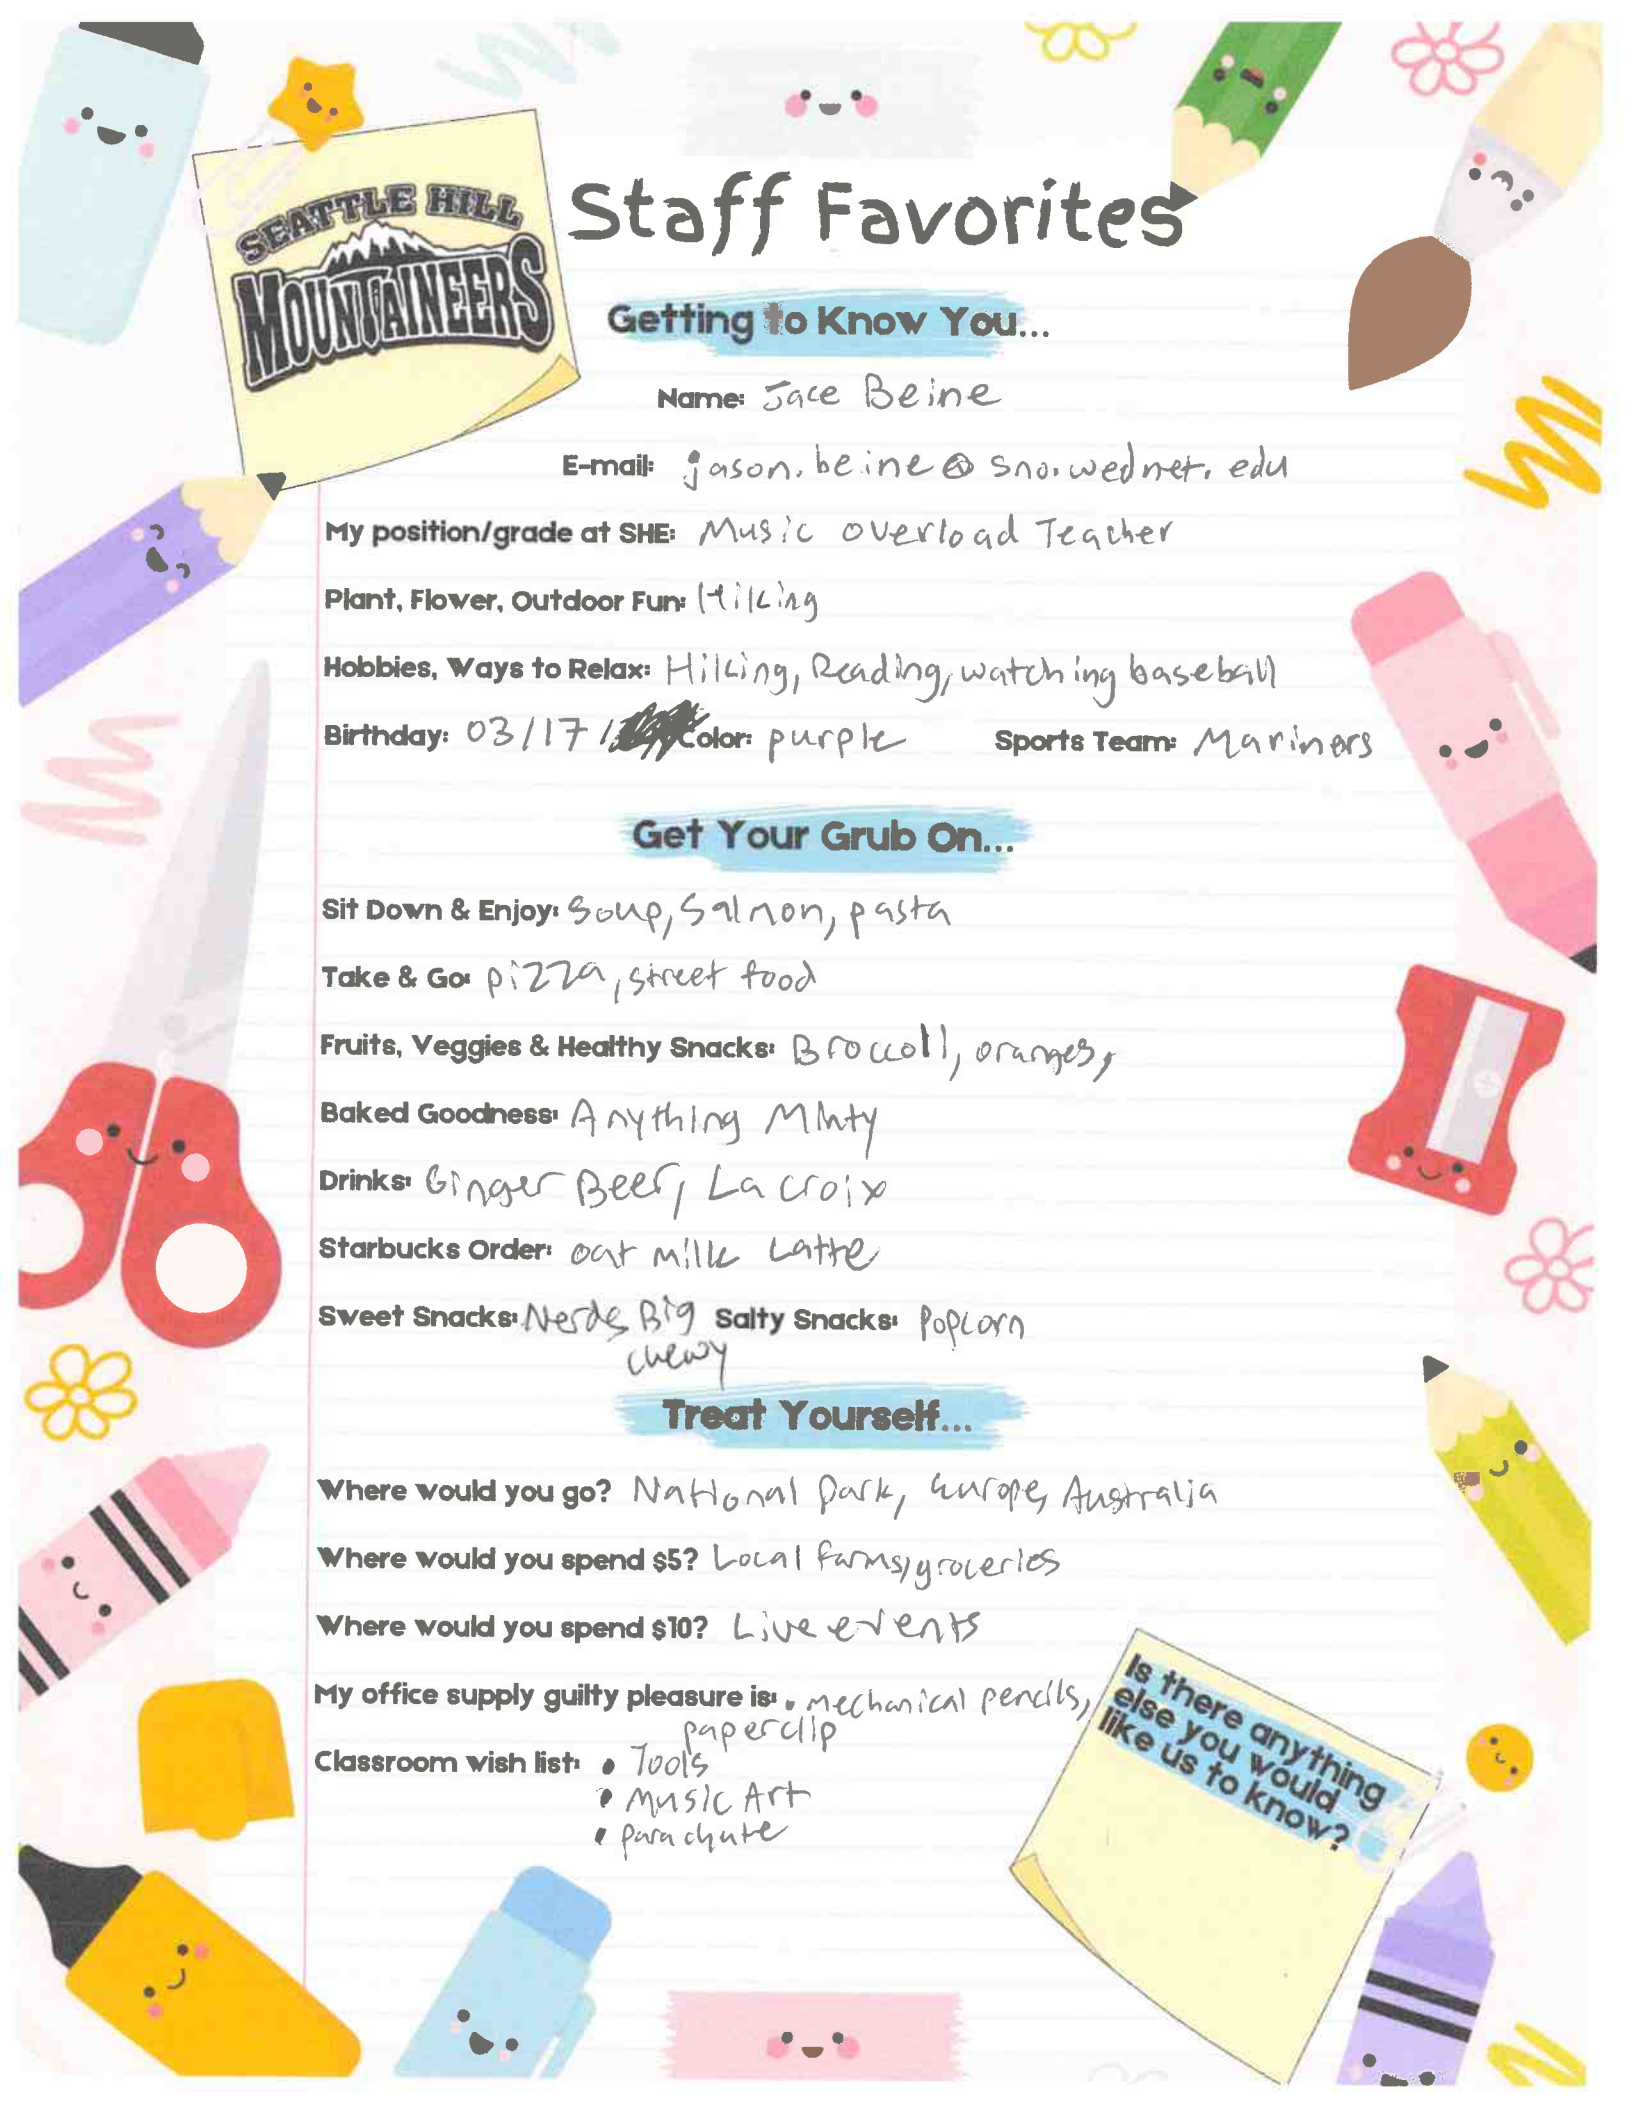 SEATTLE HILL
MOUNTAINEERS
Staff Favorites
Getting to Know You...
Name: Jace Beine
E-mail: jason.beine@sno.wednet.edu
My position/grade at SHE: Music overload Teacher
Plant, Flower, Outdoor Fun: Hiking
Hobbies, Ways to Relax: Hiking, Reading, watching baseball
Birthday: 03/17/ Color: purple Sports Team: Mariners
Get Your Grub On...
Sit Down & Enjoy: Soup, Salmon, pasta
Take & Go: pizza, street food
Fruits, Veggies & Healthy Snacks: Broccoli, oranges,
Baked Goodness: Anything Minty
Drinks: Ginger Beer, La croix
Starbucks Order: oat milk Latte
Sweet Snacks: Nerds Big Salty Snacks: Popcorn
chewy
Treat Yourself...
Where would you go? National Park, Europe, Australia
Where would you spend $5? Local farms, groceries
Where would you spend $10? Live events
My office supply guilty pleasure is: • mechanical pencils,
paperclip
Classroom wish list: • Tools
• Music Art
• parachute
Is there anything
else you would
like us to know?